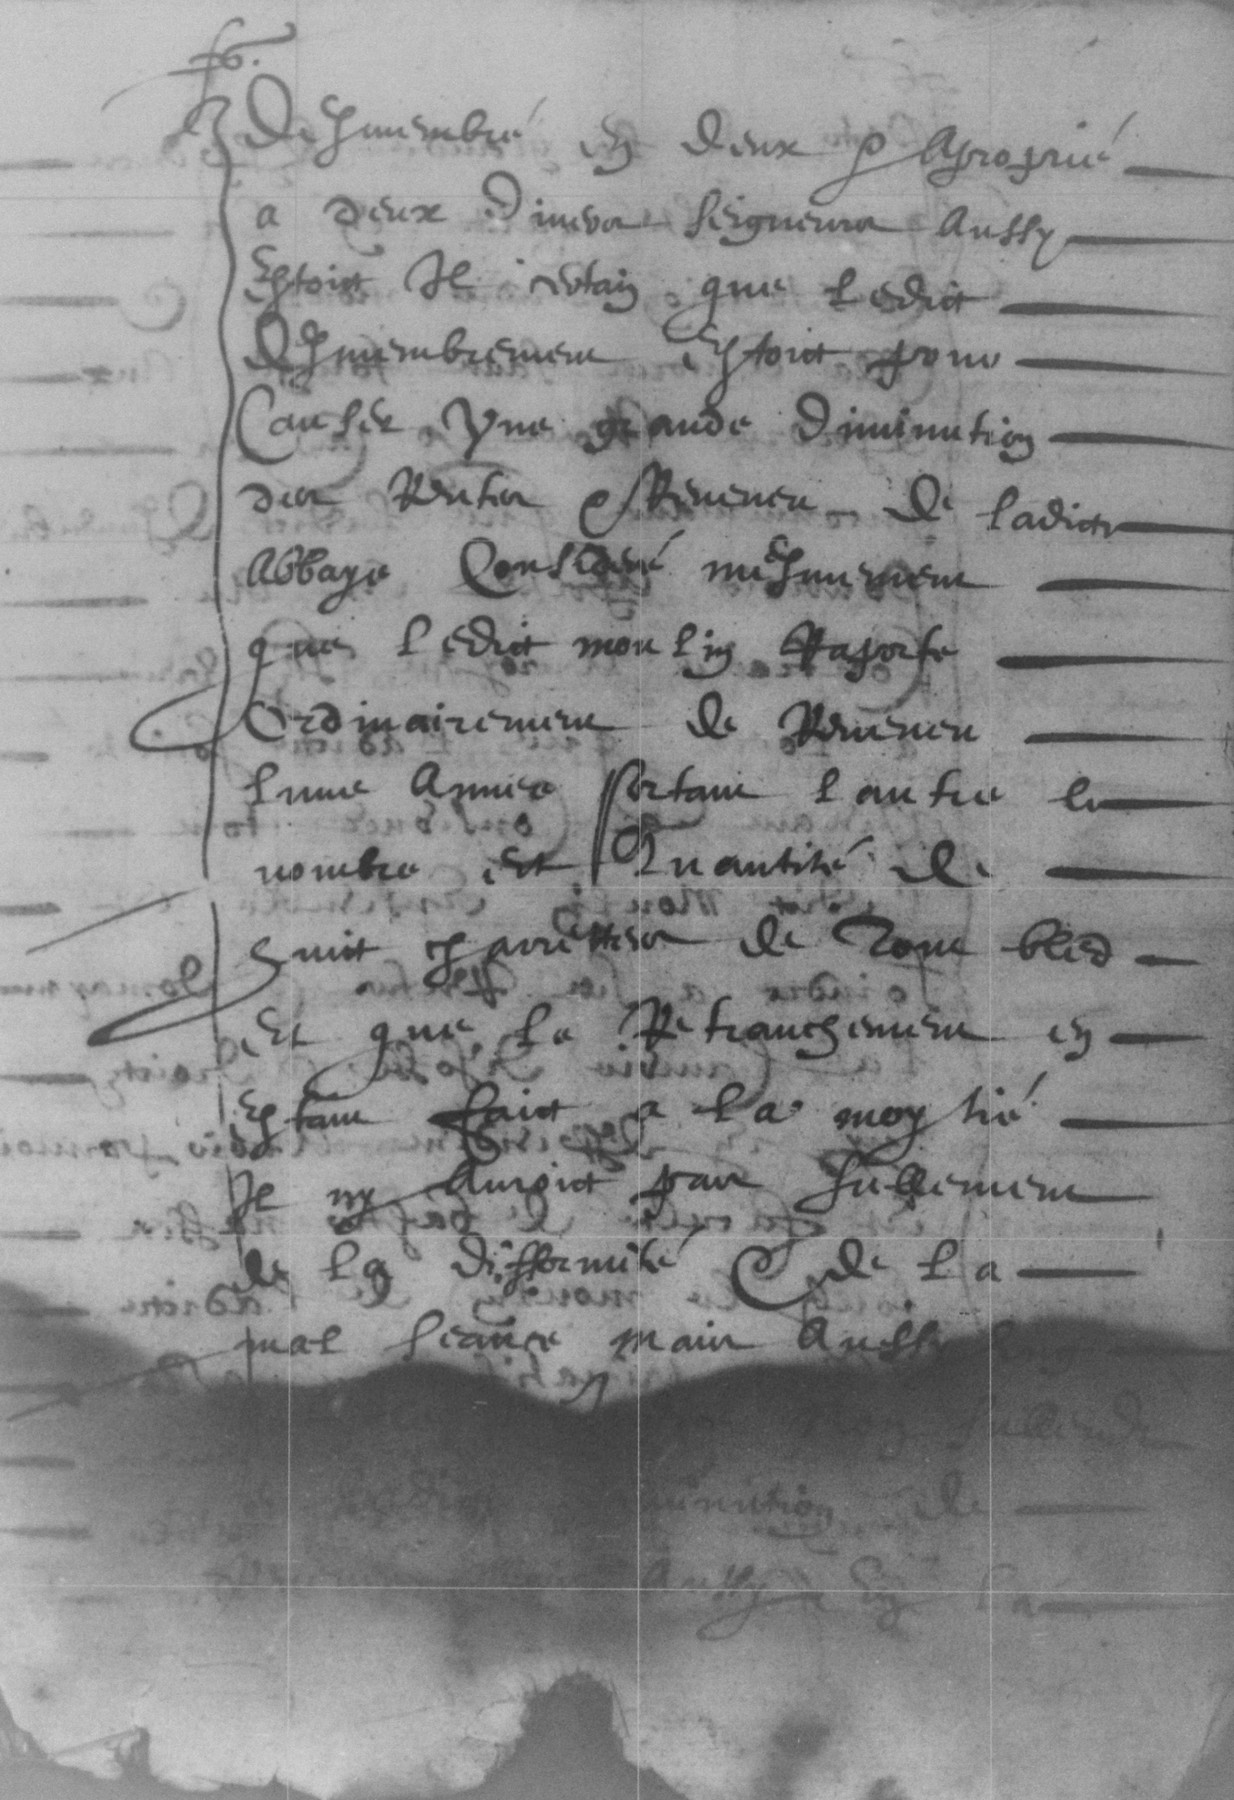 Desmembré en deux & Aproprié
a deux divers seigneurs Aussy
Estoit Il certain que ledict
Desmembrement Estoict pour
Causer Vne grande Diminution
des Rentes & Reueneu de ladicte
Abbaye Consideré mesmement
que ledict moulin Raporte
Ordinairement de Reueneu
lune Année portant lautre le
nombre Et Quantité de
huict charrettes de bled
Et que le Retranchement en
Estant faict a la moytié
Il ny Auroict pas sullement
de la difformité & de la
mal seance mais Aussy
diminution de
Aussy la